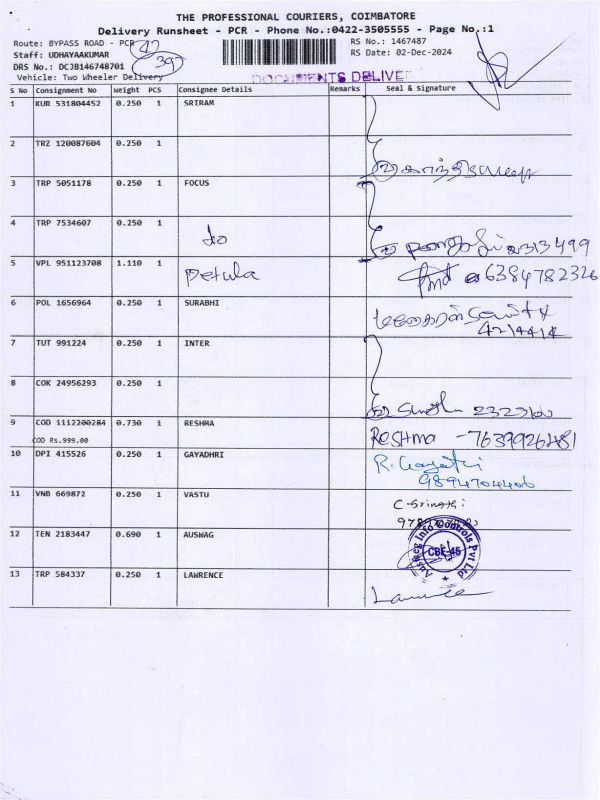 THE PROFESSIONAL COURIERS, COIMBATORE
Delivery Runsheet - PCR - Phone No.:0422-3505555 - Page No.:1
Route: BYPASS ROAD - PCR
RS No.: 1467487
Staff: UDHAYAAKUMAR
RS Date: 02-Dec-2024
DRS No.: DCJB146748701
Vehicle: Two Wheeler Delivery
S No Consignment No Weight PCS Consignee Details Remarks Seal & Signature
1 KUR 531804452 0.250 1 SRIRAM
2 TRZ 120087604 0.250 1
3 TRP 5051178 0.250 1 FOCUS
4 TRP 7534607 0.250 1 do
5 VPL 951123708 1.110 1 Petula 6384782326
6 POL 1656964 0.250 1 SURABHI
4214414
7 TUT 991224 0.250 1 INTER
8 COK 24956293 0.250 1
9 COD 1112200284 0.730 1 RESHMA RESHMA -7639926481
COD Rs.999.00
10 DPI 415526 0.250 1 GAYADHRI R. Gayatri
9894704406
11 VNB 669872 0.250 1 VASTU
12 TEN 2183447 0.690 1 AUSWAG
Ausweg Info Controls Pvt Ltd CBE-45
13 TRP 584337 0.250 1 LAWRENCE